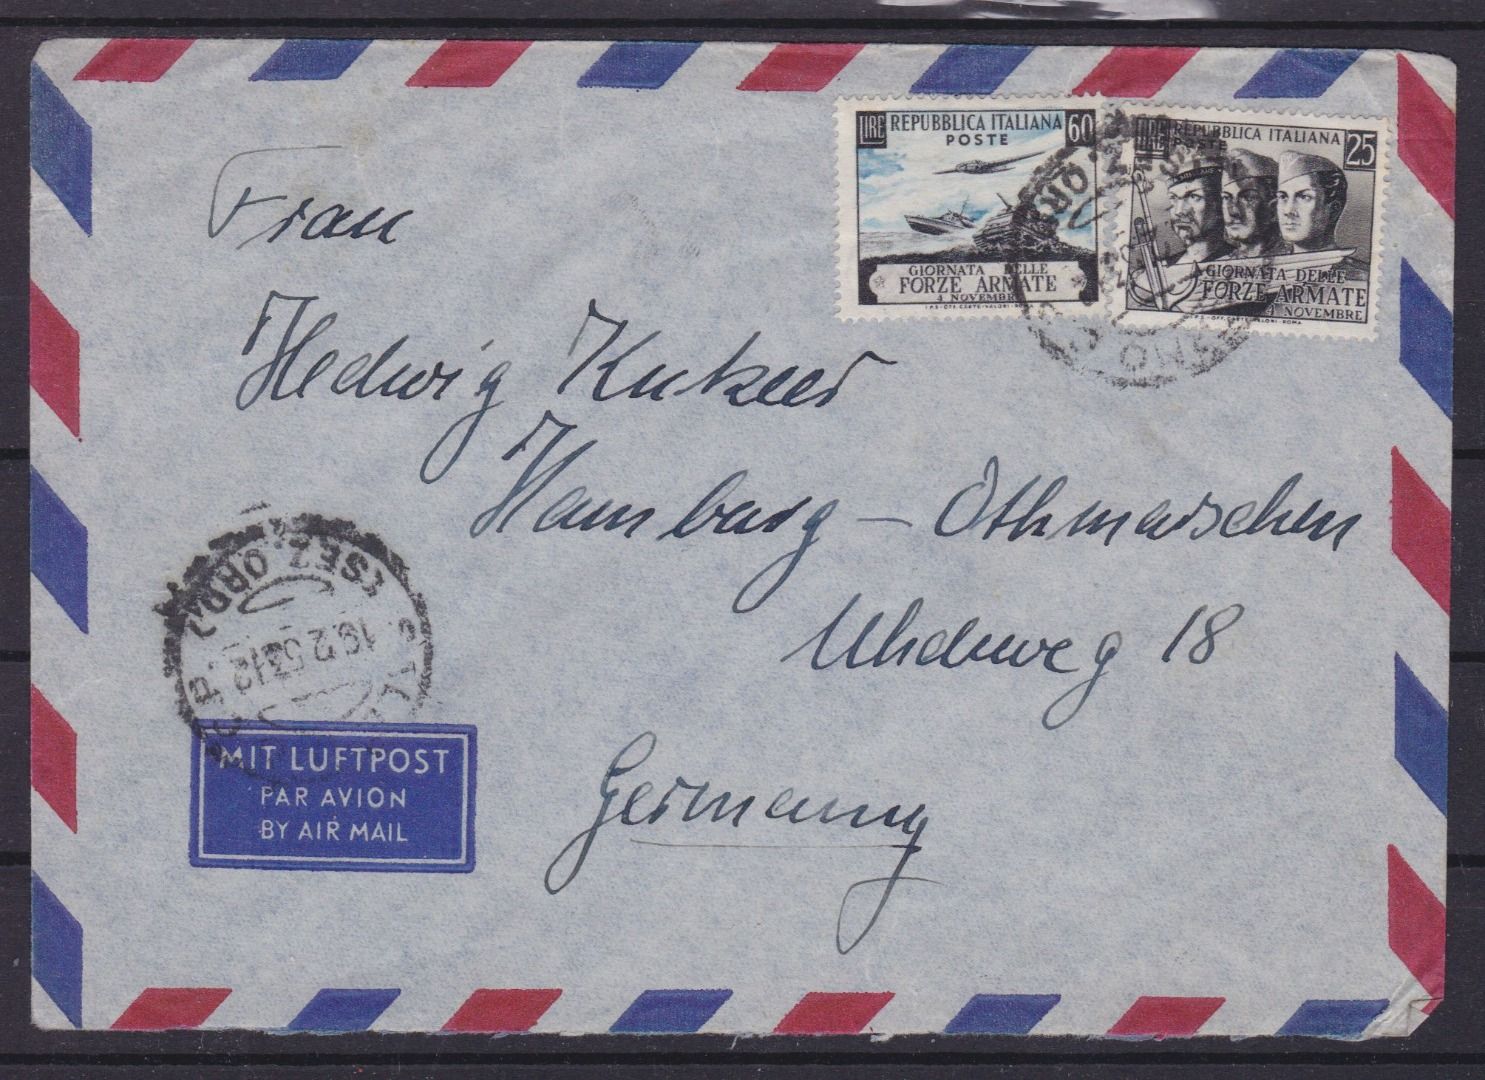 LIRE REPUBBLICA ITALIANA 60
POSTE
GIORNATA DELLE
FORZE ARMATE
4 NOVEMBRE
I.P.S.-OFF. CARTE-VALORI-ROMA
LIRE REPUBBLICA ITALIANA
POSTE 25
GIORNATA DELLE
FORZE ARMATE
4 NOVEMBRE
I.P.S.-OFF. CARTE-VALORI-ROMA
Frau
Hedwig
Hamburg - Othmarschen
18
Germany
(SEZ. ORD.
MIT LUFTPOST
PAR AVION
BY AIR MAIL